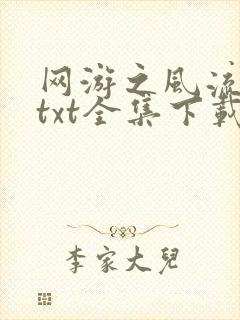 网游之风流
txt全集下载
李家大兒